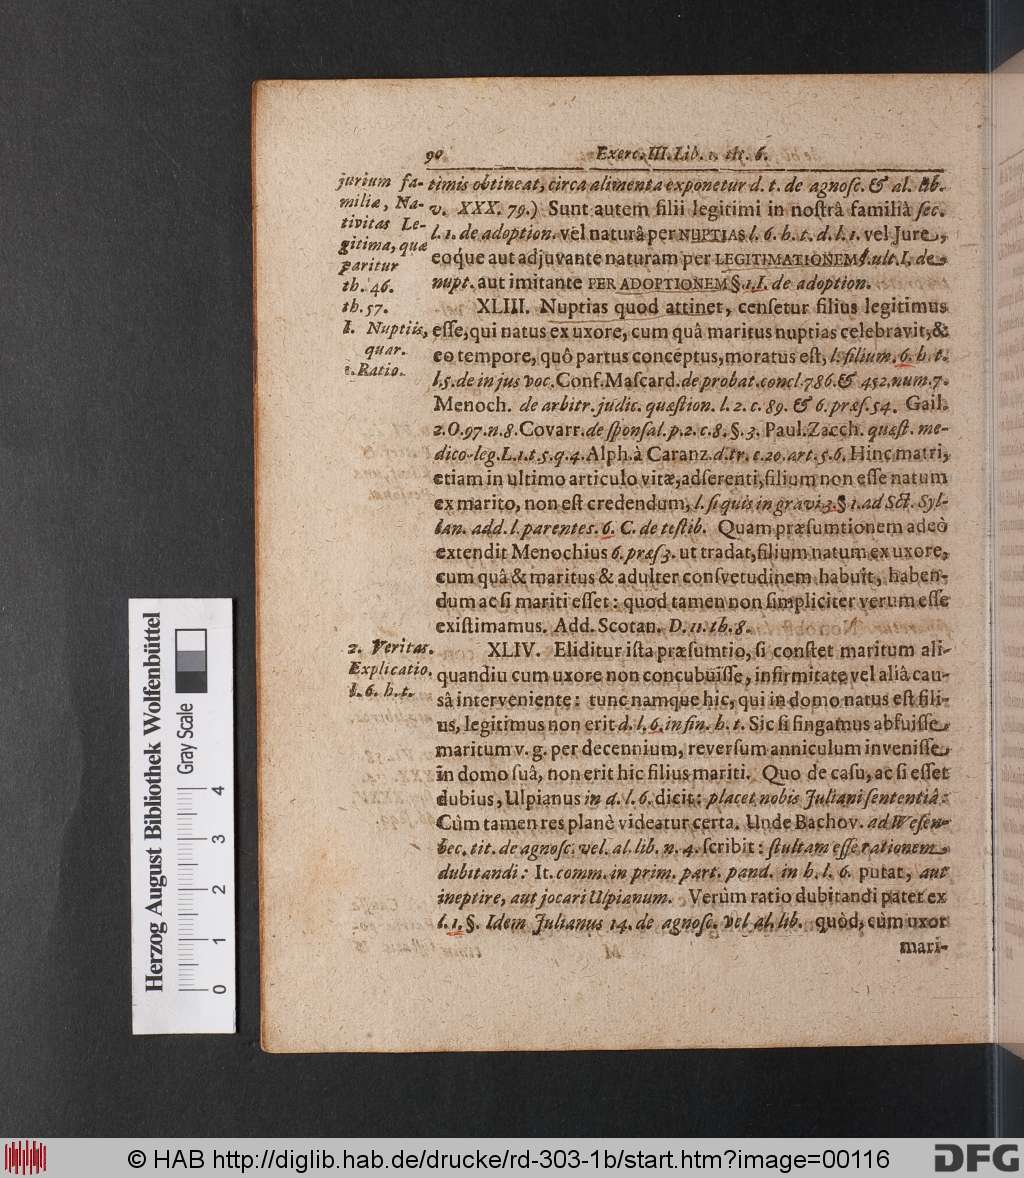 90 Exerc. III. Lib. 1. tit. 6.
jurium fa-
miliæ, Na-
tivitas Le-
gitima, quæ
paritur
th. 46.
th. 57.
1. Nuptiis,
quar.
Ratio.
timis obtineat, circa alimenta exponetur d. t. de agnosc. & al. lib.
v. XXX. 79.) Sunt autem filii legitimi in nostrâ familiâ sec.
l. 1. de adoption. vel naturâ per NUPTIAS l. 6. h. t. d. l. 1. vel Jure,
eoque aut adjuvante naturam per LEGITIMATIONEM §. ult. I. de
nupt. aut imitante PER ADOPTIONEM §. 1. I. de adoption.
XLIII. Nuptias quod attinet, censetur filius legitimus
esse, qui natus ex uxore, cum quâ maritus nuptias celebravit, &
eo tempore, quô partus conceptus, moratus est, l. filium. 6. h. t.
l. 5. de in jus voc. Conf. Mascard. de probat. concl. 786. & 452. num. 7.
Menoch. de arbitr. judic. quæstion. l. 2. c. 89. & 6. præs. 54. Gail.
2. O. 97. n. 8. Covarr. de sponsal. p. 2. c. 8. §. 3. Paul. Zacch. quæst. me-
dico-leg. L. 1. t. 5. q. 4. Alph. à Caranz. d. tr. c. 20. art. 5. 6. Hinc matri,
etiam in ultimo articulo vitæ, adserenti, filium non esse natum
ex marito, non est credendum, l. si quis in gravi 3. § 1. ad Sct. Syl-
lan. add. l. parentes. 6. C. de testib. Quam præsumtionem adeò
extendit Menochius 6. præs 3. ut tradat, filium natum ex uxore,
cum quâ & maritus & adulter consvetudinem habuit, haben-
dum ac si mariti esset: quod tamen non simpliciter verum esse
existimamus. Add. Scotan. D. 11. th. 8.
2. Veritas.
Explicatio.
l. 6. h. t.
XLIV. Eliditur ista præsumtio, si constet maritum ali-
quandiu cum uxore non concubuisse, infirmitate vel aliâ cau-
sâ interveniente: tunc namque hic, qui in domo natus est fili-
us, legitimus non erit d. l. 6. in fin. h. t. Sic si fingamus abfuisse
maritum v. g. per decennium, reversum anniculum invenisse
in domo suâ, non erit hic filius mariti. Quo de casu, ac si esset
dubius, Ulpianus in d. l. 6. dicit: placet nobis Juliani sententiâ:
Cùm tamen res planè videatur certa. Unde Bachov. ad Wesen-
bec. tit. de agnosc. vel. al. lib. n. 4. scribit: stultam esse rationem
dubitandi: It. comm. in prim. part. pand. in h. l. 6. putat, aut
ineptire, aut jocari Ulpianum. Verùm ratio dubitandi patet ex
l. 1. §. Idem Julianus 14. de agnosc. vel al. lib. quòd, cùm uxor
mari-
Herzog August Bibliothek Wolfenbüttel
Gray Scale
0 1 2 3 4
© HAB http://diglib.hab.de/drucke/rd-303-1b/start.htm?image=00116
DFG